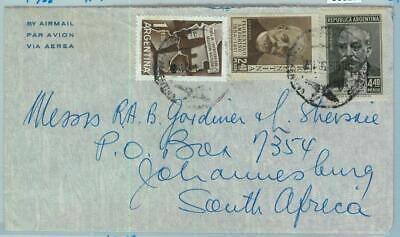 BY AIRMAIL
PAR AVION
VIA AEREA
ARGENTINA
2.40
REPUBLICA ARGENTINA
4.40
Messrs R.A.B. Gardiner & J.
P.O. Box 7354
Johannesburg
South Africa